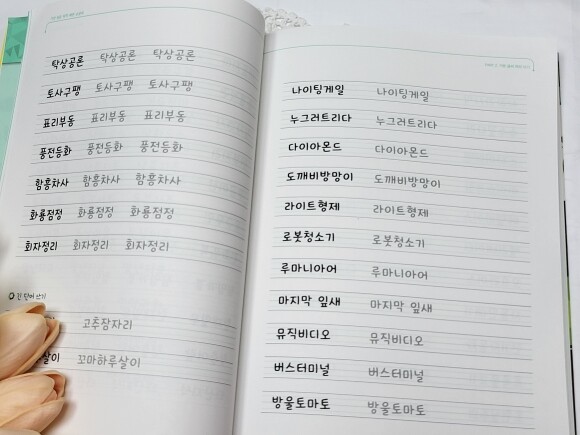 탁상공론 탁상공론 탁상공론
토사구팽 토사구팽 토사구팽
표리부동 표리부동 표리부동
풍전등화 풍전등화 풍전등화
함흥차사 함흥차사 함흥차사
화룡점정 화룡점정 화룡점정
회자정리 회자정리 회자정리
긴 단어 쓰기
고추잠자리
살이 꼬마하루살이
나이팅게일 나이팅게일
누그러트리다 누그러트리다
다이아몬드 다이아몬드
도깨비방망이 도깨비방망이
라이트형제 라이트형제
로봇청소기 로봇청소기
루마니아어 루마니아어
마지막 잎새 마지막 잎새
뮤직비디오 뮤직비디오
버스터미널 버스터미널
방울토마토 방울토마토